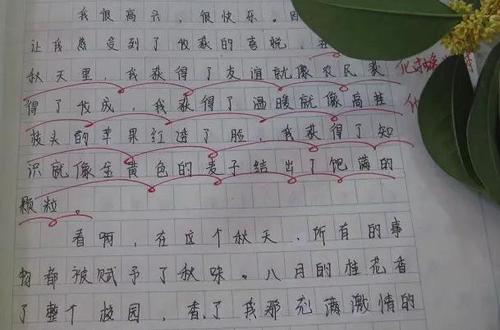 我很高兴，很快乐。因
让我感受到了收获的喜悦，在
秋天里，我获得了友谊就像农民获
得了收成，我获得了温暖就像高挂
枝头的苹果红透了脸，我获得了知
识就像金黄色的麦子结出了饱满的
颗粒。
看啊，在这个秋天，所有的事
物都被赋予了秋味。八月的桂花香
了整个校园，香了我那充满激情的